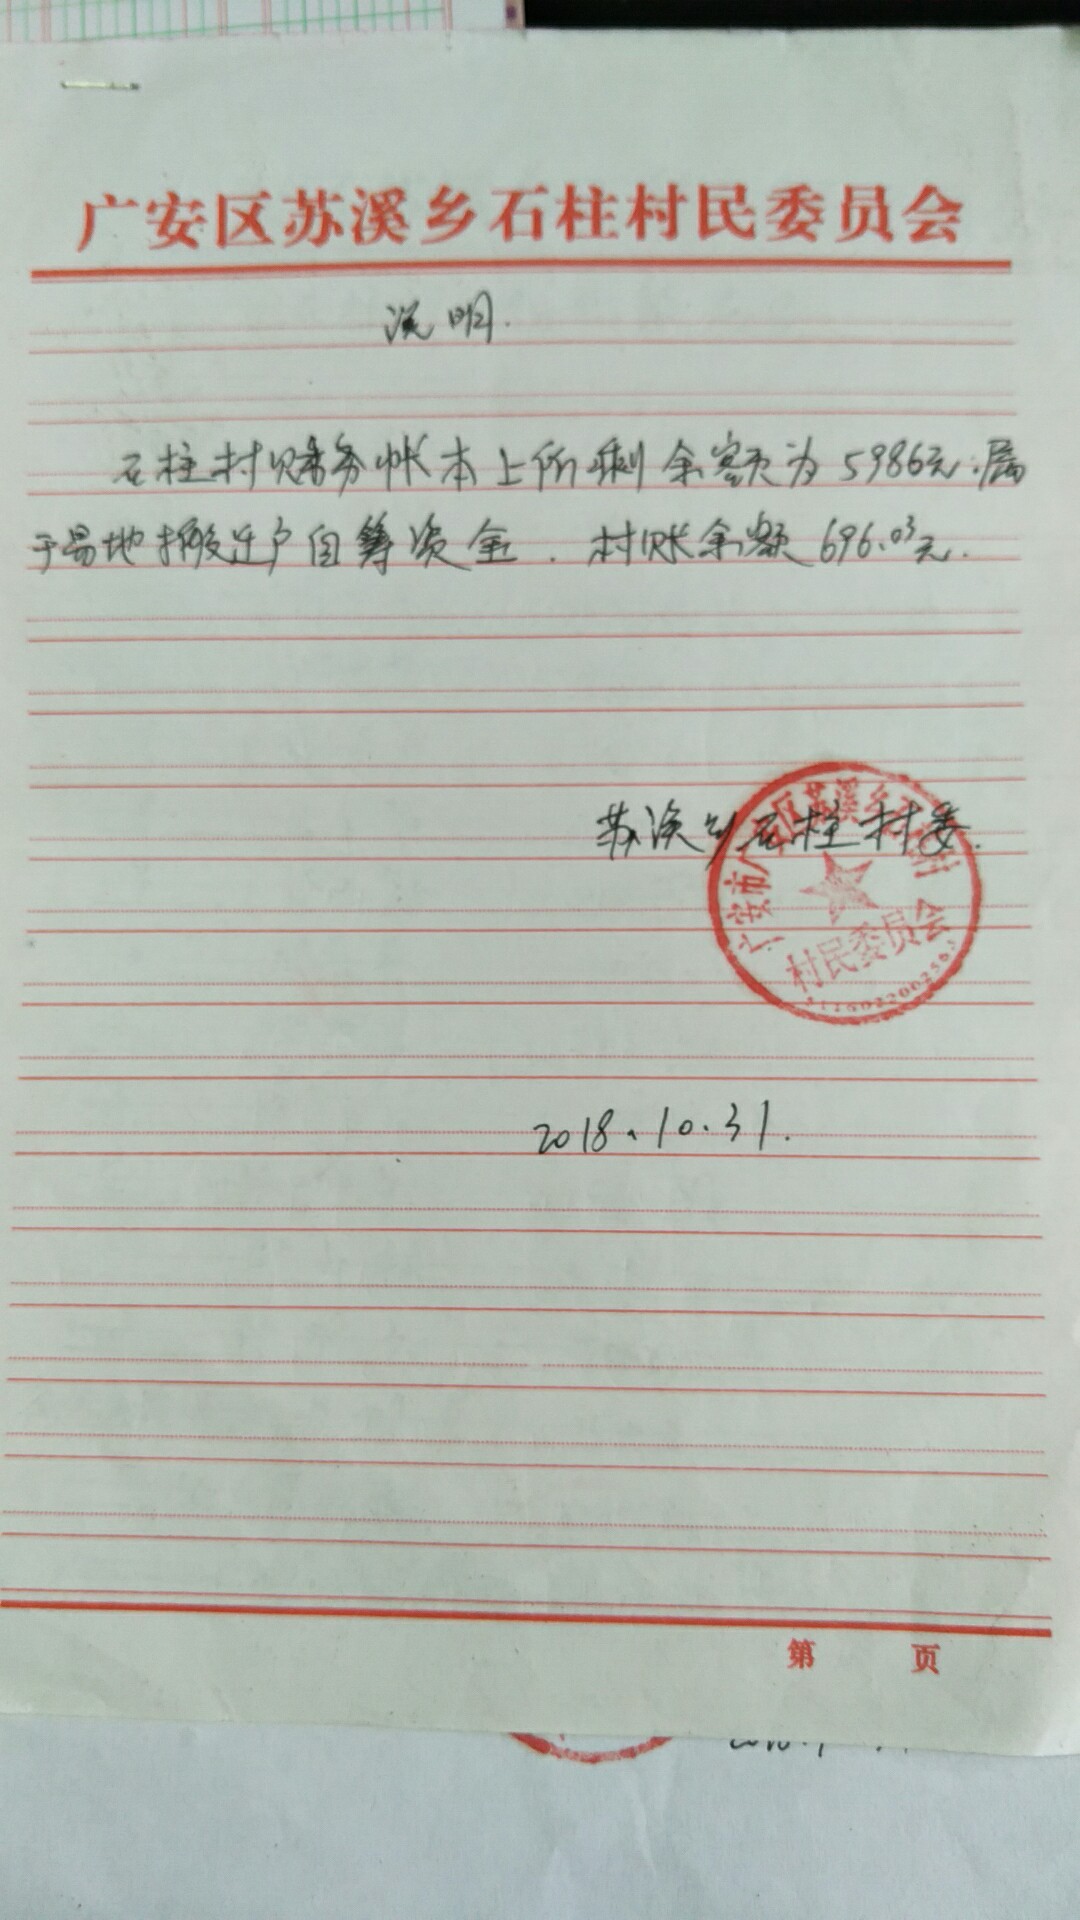 广安区苏溪乡石柱村民委员会
说明.
石柱村财务帐本上所剩余额为5986元.属
于易地搬迁户自筹资金.村账余额696.03元.
苏溪乡石柱村委.
广安市广安区苏溪乡石柱村
村民委员会
2018.10.31.
第 页